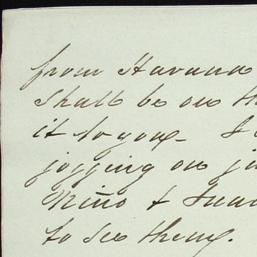 from Havana
shall be on th
it to you - I
jogging on ju
Niño & Juan
to see them.